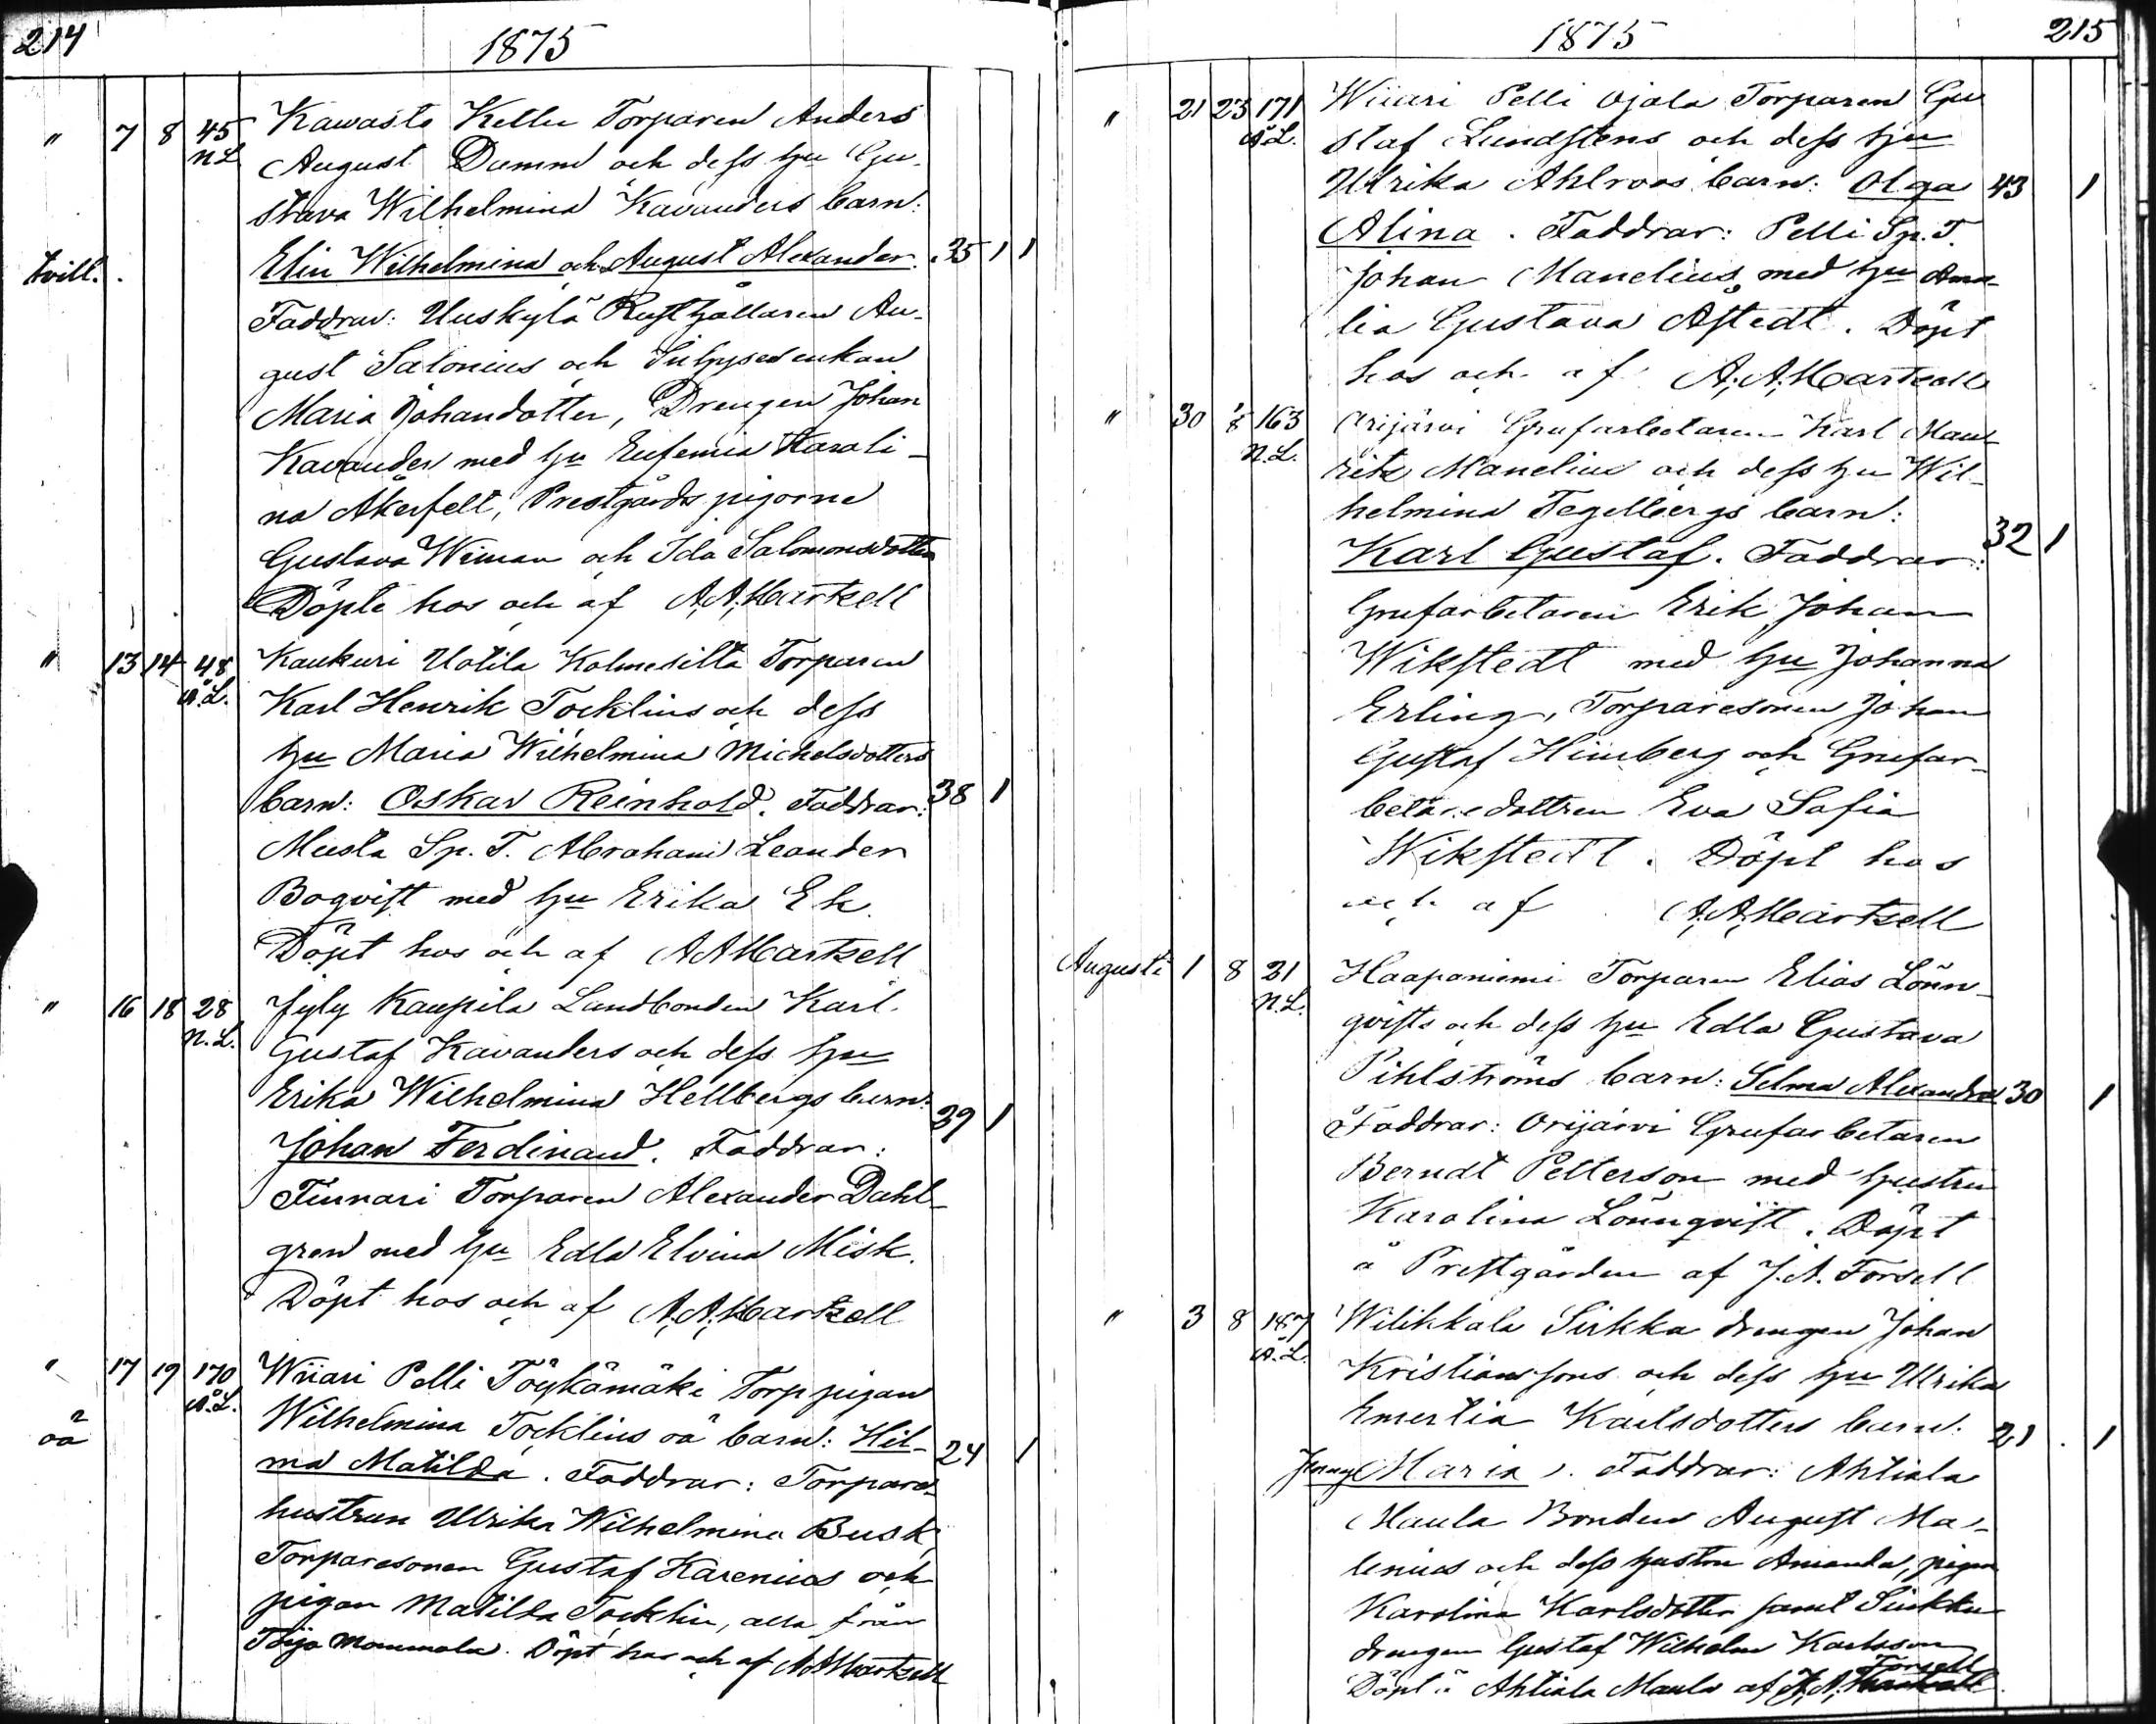 214
1875
" 7 8 45 Kawasto Kellu Torparen Anders
N.L. August Damm och dess hu Gu-
stava Wilhelmina Kavanders barn:
tvill. Elin Wilhelmina och August Alexander. 35 1 1
Faddrar: Uuskylä Rusthållaren Au-
gust Salonius och enkan
Maria Johansdotter, Drengen Johan
Kavander med hu Eufemia Karoli-
na Åkerfelt, Prestgårds pigorne
Gustava Wiman och Ida Salomonsdotter
Döpte hos och af A.A. Hartzell
" 13 14 48 Kaukuri Uotila Kolmesilta Torparen
Å.L. Karl Henrik Tocklins och dess
hu Maria Wilhelmina Michelsdotters
barn: Oskar Reinhold. Faddrar: 38 1
Musta Sp. T. Abraham Leander
Boqvist med hu Erika Ek.
Döpt hos och af A A Hartzell
" 16 18 28 Jyly Kaupila Landbonden Karl
N.L. Gustaf Kavanders och dess hu
Erika Wilhelmina Hellbergs barn: 39 1
Johan Ferdinand. Faddrar:
Finnari Torparen Alexander Dahl-
gren med hu Edla Elvina Misk.
Döpt hos och af A.A. Hartzell
" 17 19 170 Wiiari Pelli Töykämäki Torp pigan
Å.L.
oä Wilhelmina Tocklins oä barn: Hil- 24 1
ma Matilda. Faddrar: Torpare-
hustrun Ulrika Wilhelmina Busk,
Torparesonen Gustaf Karenius och
pigan Matilda Tocklin, alla från
Toija Mommola. Döpt hos och af A A Hartzell
1875
215
" 21 23 171 Wiiari Pelli Ojala Torparen Gu
Å.L. staf Lundstens och dess hu
Ulrika Ahlroos barn: Olga 43 1
Alina. Faddrar: Pelli Sp. T.
Johan Manelius med hu Ama-
lia Gustava Åstedt. Döpt
hos och af A.A. Hartzell
" 30 163 Orijärvi Grufarbetaren Karl Mau
N.L. ritz Manelius och dess hu Wil-
helmina Tegelbergs barn:
Karl Gustaf. Faddrar: 32 1
Grufarbetaren Erik Johan
Wikstedt med hu Johanna
Erling, Torparesonen Johan
Gustaf Himberg och Grufar-
betaredottren Eva Sofia
Wikstedt. Döpt hos
och af A.A. Hartzell
Augusti 1 8 21 Haapaniemi Torparen Elias Lönn-
N.L. qvists och dess hu Edla Gustava
Pihlströms barn: Selma Alexandra 30 1
Faddrar: Orijärvi Grufarbetaren
Berndt Petterson med hustru
Karolina Lönnqvist. Döpt
å Prestgården af J.A. Forsell
" 3 8 187 Wilikkala Sirkka drengen Johan
Å.L. Kristianssons och dess hu Ulrika
Karlsdotters barn: 21 1
Jenny Maria. Faddrar: Ahtiala
Maula Bonden August Ma-
lenius och dess hustru Amanda, pigan
Karolina Karlsdotter samt
drengen Gustaf Wilhelm Karlsson
Döpt å Ahtiala Maula af J.A. Forsell